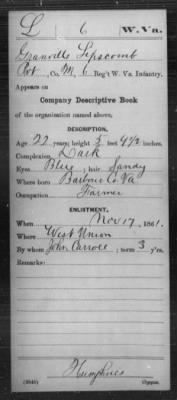 L 6 W. Va.
Granville Lipscomb
Pvt., Co. M, 6 Reg't W. Va. Infantry.
Appears on
Company Descriptive Book
of the organization named above.
DESCRIPTION.
Age 22 years; height 5 feet 9½ inches.
Complexion Dark
Eyes Blue; hair Sandy
Where born Barbour Co. Va
Occupation Farmer
ENLISTMENT.
When Nov 17, 1861.
Where West Union
By whom John Carroll; term 3 y'rs.
Remarks:
Humphries
Copyist.